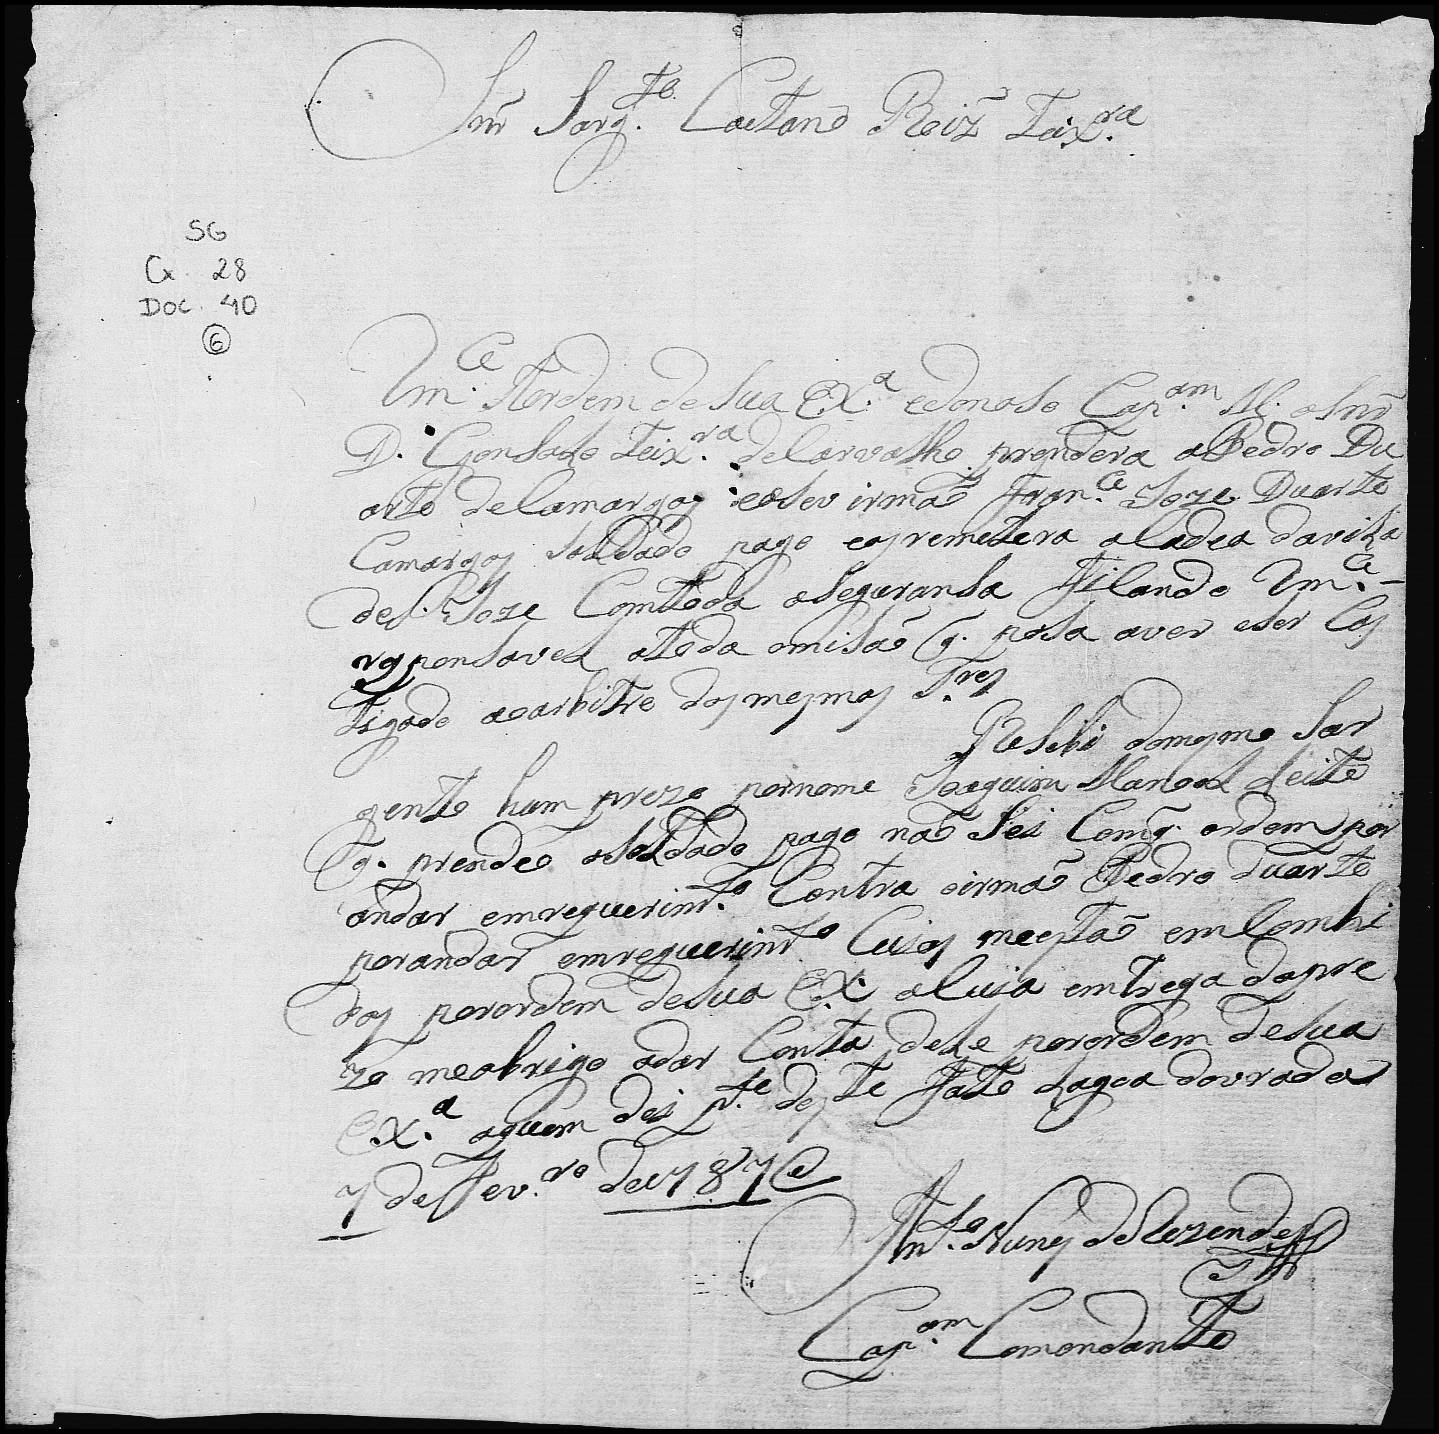 Snr Sarg.to Caetano Roiz Teix.ra
SG
Cx. 28
Doc. 40
6
Vm.ce A ordem de Sua Ex.a edonoso Cap.am M. oSnr
D. Gonsalo Teix.ra deCarvalho prendera aPedro Du
arte deCamargos eoSeu irmaõ Fran.co Joze Duarte
Camargos Soldado pago eosremetera aCadea davila
deS. Joze Comtoda aSeguransa ficando Vm.ce
responsavel atoda omisaõ q. posa aver eser Cas
tigado aoarbitre dosmesmos Sres
ReSebi domesmo Sar
gento hum prezo pornome Joaquim Manoel Leite
q. prendeo oSoldado pago naõ Sei Comq. ordem por
andar emreguerim.to Contra oirmaõ Pedro Duarte
porandar emreguerim.to Cujos meestaõ emCombi
dos porordem deSua Ex.a aCuja emtrega dopre
zo meobrigo adar Conta dele porordem deSua
Ex.a aquem dei p.te deste fato Lagoa dourada
7 deFev.ro de
Ant.o Nunes deRezende
Cap.am Comandante